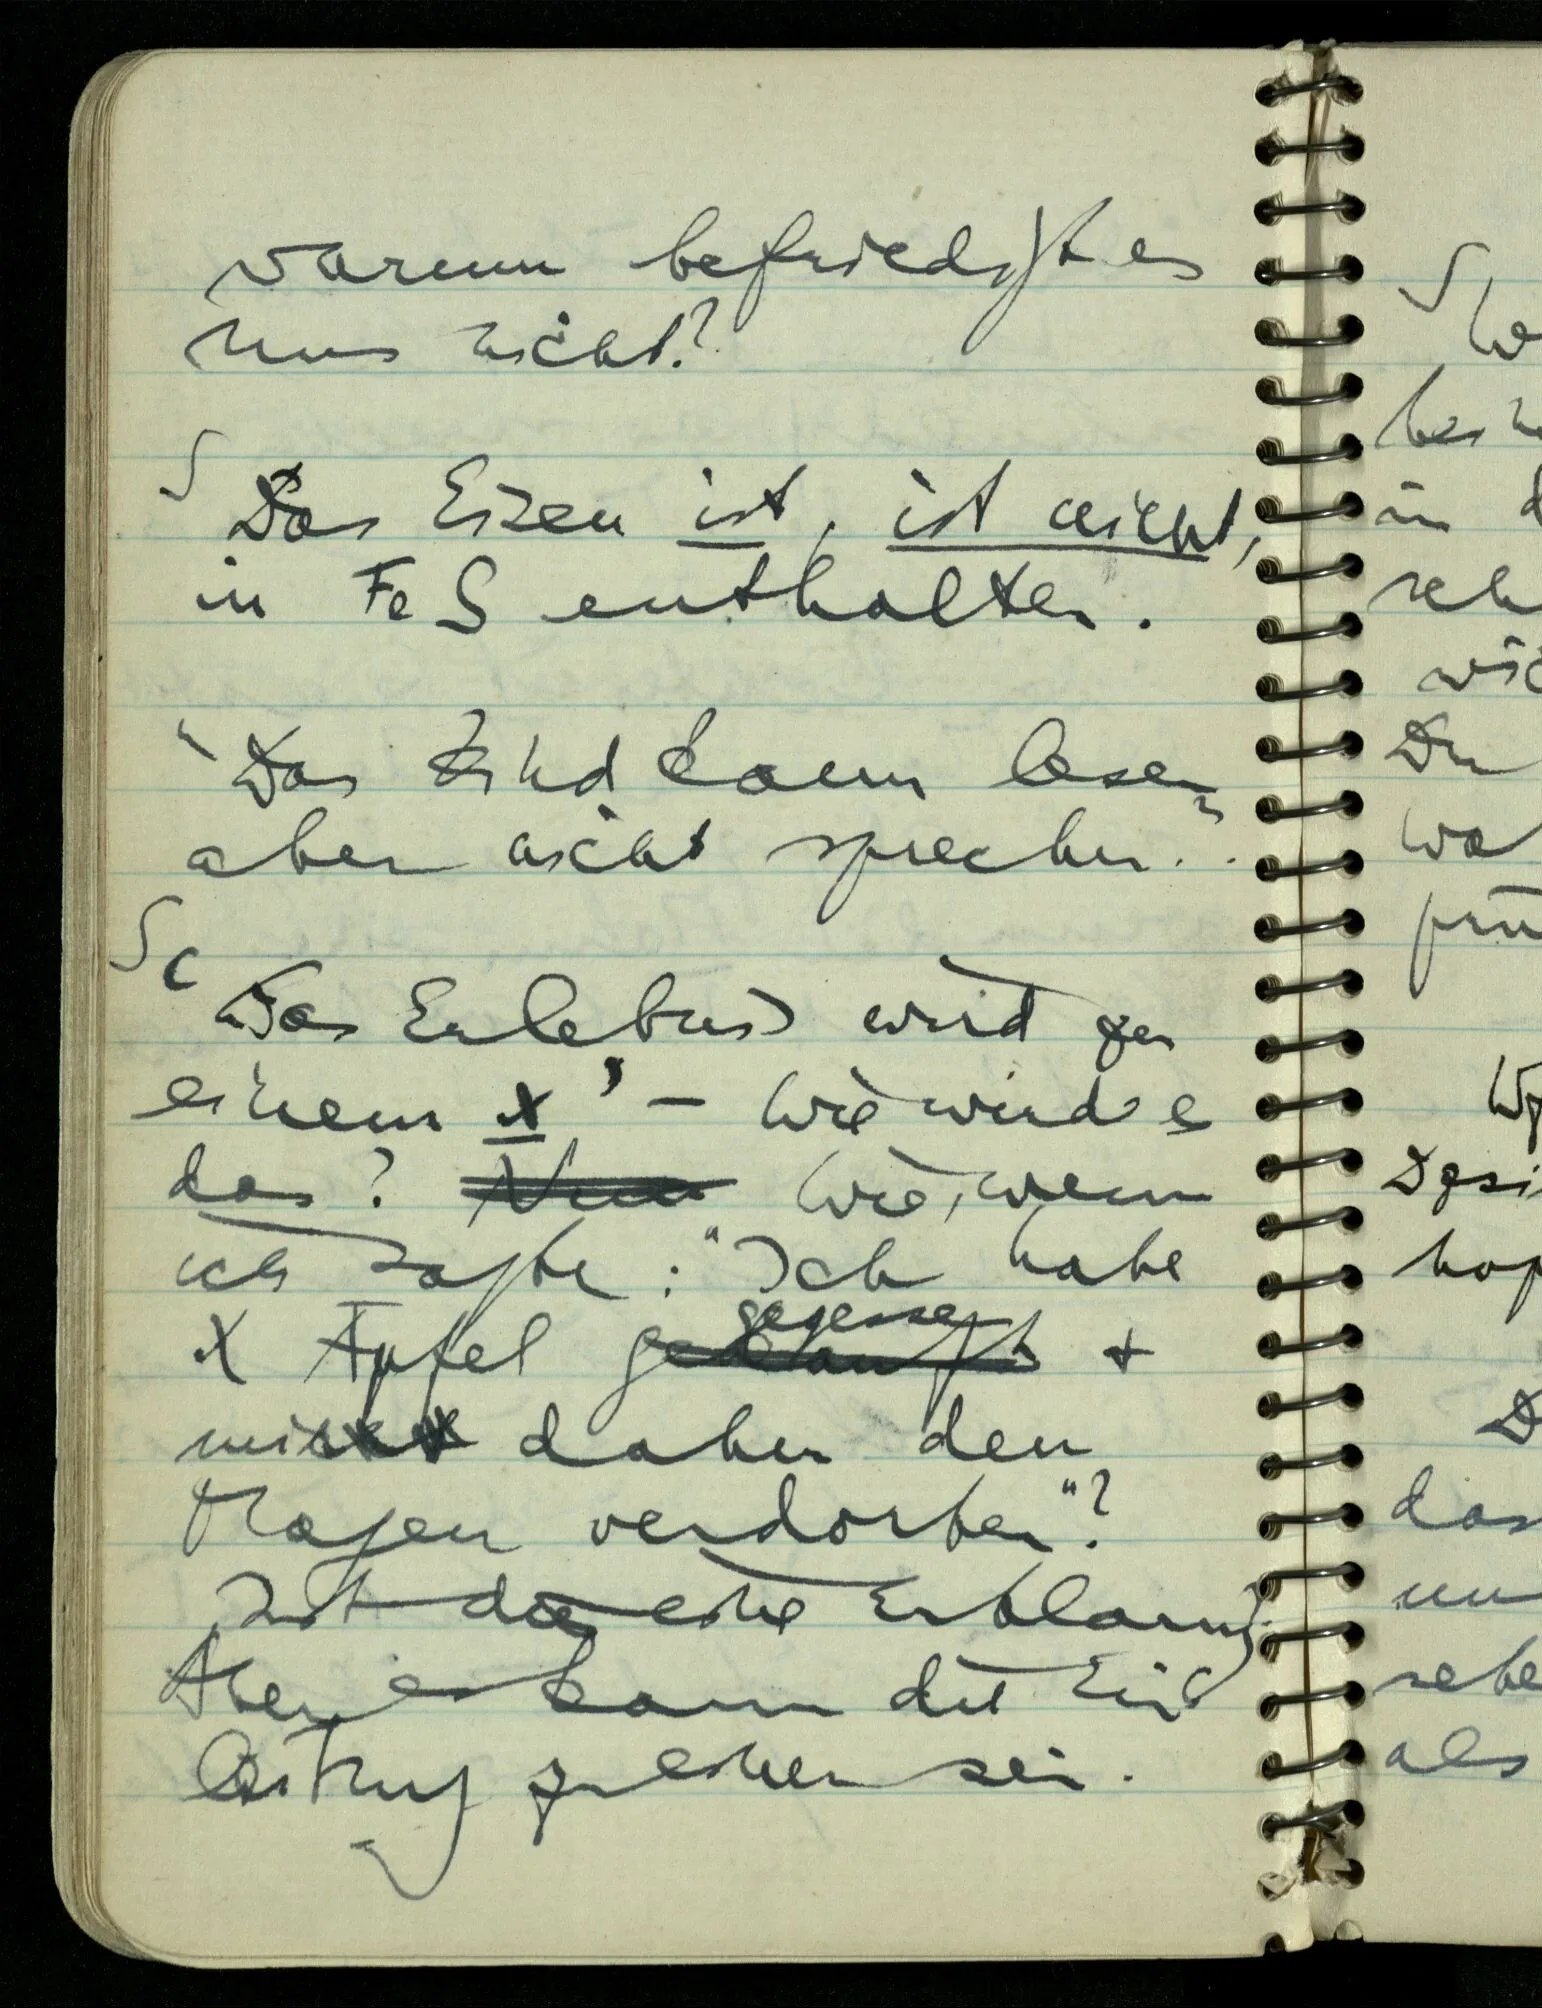 warum befriedigt es
uns nicht?
S
Das Eisen ist, ist nicht,
in FeS enthalten.
"Das Kind kann lesen
aber nicht sprechen."
S c
Das Erlebnis wird zu
einem x' – Wie wird es
das? Wie, wenn
ich sagte: "Ich habe
x Äpfel gegessen +
mir daher den
Magen verdorben"?
Ist das eine Erklärung?
Aber es kann die Ein
leitung zu einer sein.
S
in d
Du
als